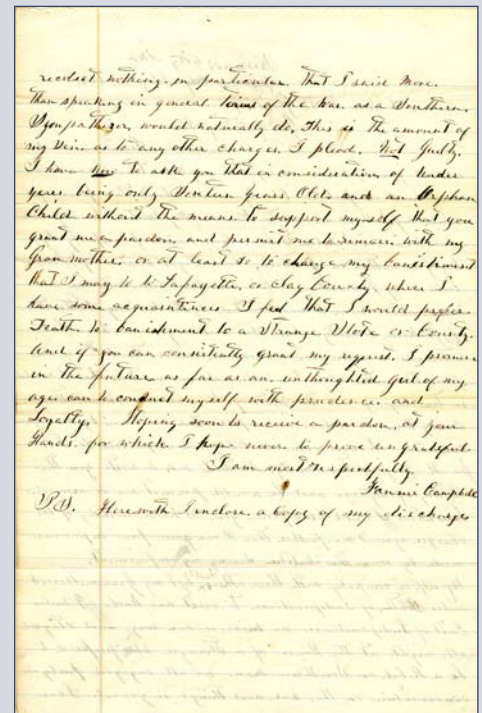 recolect nothing in particular that I said more.
than speaking in general terms of the War. as a Southern
Sympatherzer, would naturally do, This is the amount of
my Sein as to any other charges. I plead. Not Guilty.
I have now to ask you that in consideration of tender
years being only Senteen Years Old and an Orphan
Child without the means to support myself that you
grant me a pardon, and permit me to remain with my
Gran mother, or at least so to change my banishment
that I may to to Lafayette, or Clay County, where I
have some acquaintences. I feel that I would prefer
Death to banishment to a Strange State or County.
And if you can consistently grant my request. I promise
in the future as far as an unthoughted Gurl of my
age can to conduct myself with prudence and
Loyalty. Hoping soon to receive a pardon, at your
Hands. for which I hope never to prove ungrateful
I am most respectfully.
Fannie Campbell
PS. Herewith I enclose a Copy of my discharge